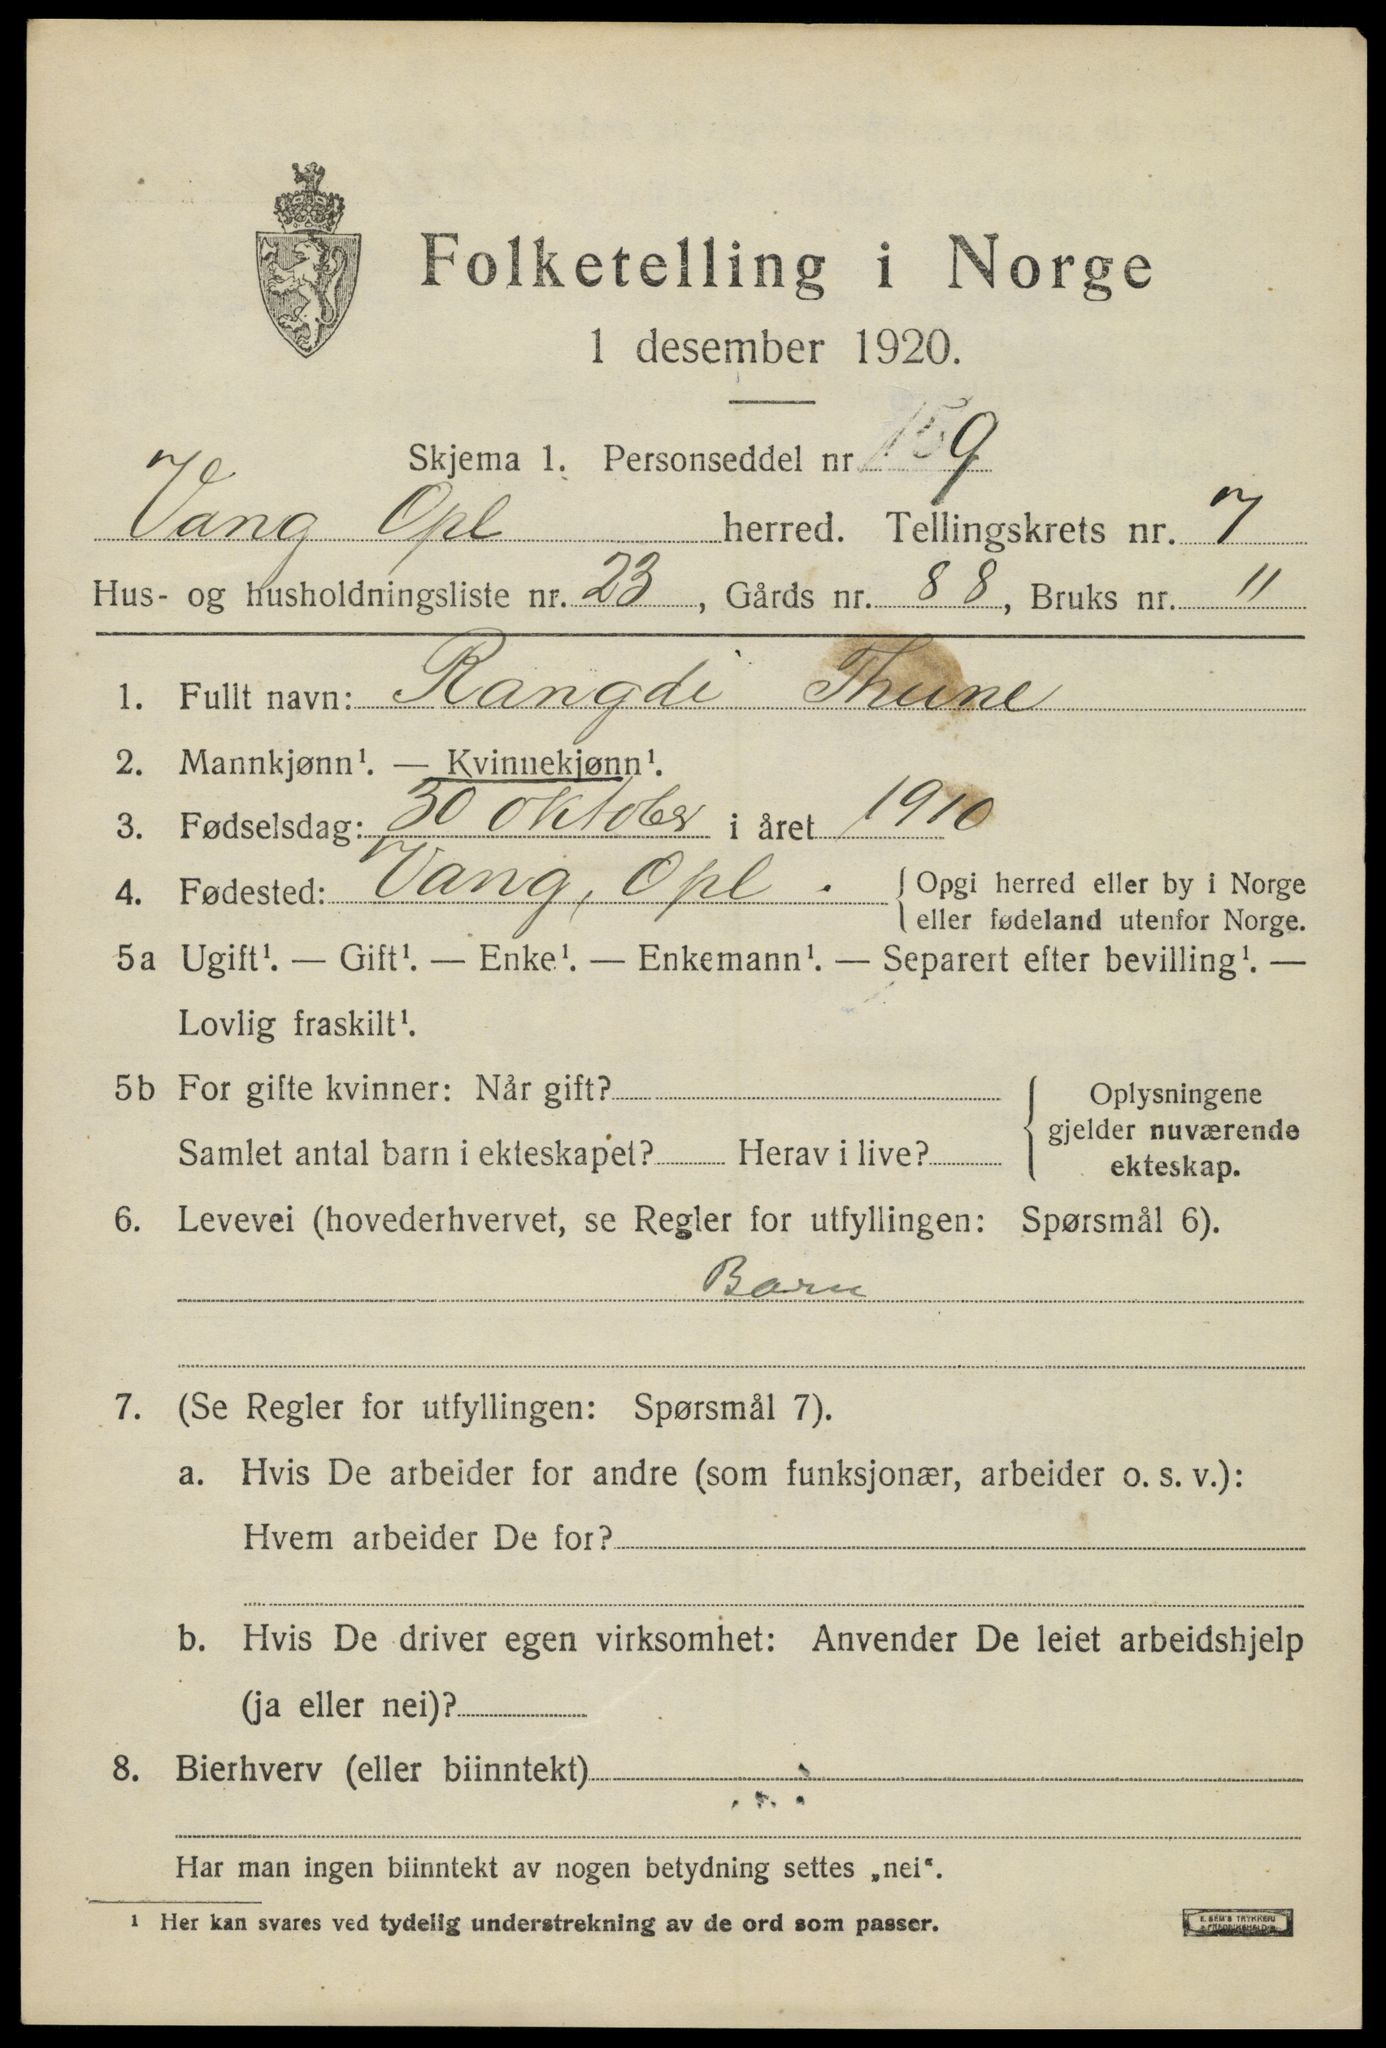 Folketelling i Norge
1 desember 1920.
Skjema 1. Personseddel nr 159
Vang Opl herred. Tellingskrets nr. 7
Hus- og husholdningsliste nr. 23, Gårds nr. 88, Bruks nr. 11
1. Fullt navn: Rangdi Thune
2. Mannkjønn¹. — Kvinnekjønn¹.
3. Fødselsdag: 30 oktober i året 1910
4. Fødested: Vang, Opl. { Opgi herred eller by i Norge
eller fødeland utenfor Norge.
5a Ugift¹. — Gift¹. — Enke¹. — Enkemann¹. — Separert efter bevilling¹. —
Lovlig fraskilt¹.
5b For gifte kvinner: Når gift? { Oplysningene
gjelder nuværende
Samlet antal barn i ekteskapet? Herav i live? ekteskap.
6. Levevei (hovederhvervet, se Regler for utfyllingen: Spørsmål 6).
Barn
7. (Se Regler for utfyllingen: Spørsmål 7).
a. Hvis De arbeider for andre (som funksjonær, arbeider o. s. v.):
Hvem arbeider De for?
b. Hvis De driver egen virksomhet: Anvender De leiet arbeidshjelp
(ja eller nei)?
8. Bierhverv (eller biinntekt)
Har man ingen biinntekt av nogen betydning settes „nei“.
¹ Her kan svares ved tydelig understrekning av de ord som passer.
E. SEM'S TRYKKERI
FREDRIKSHALD